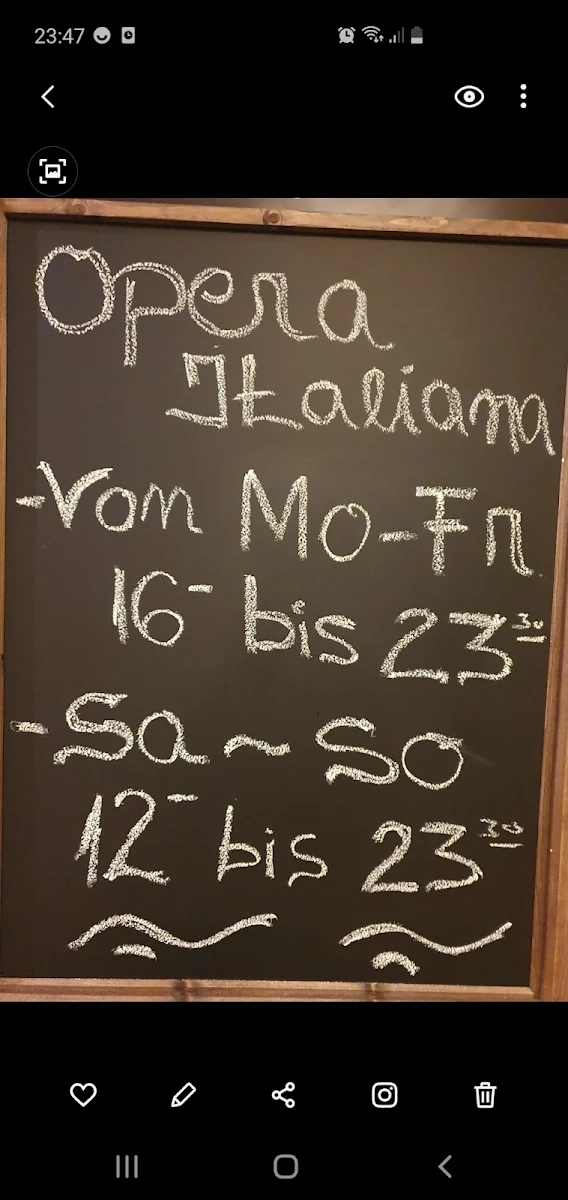 23:47
Opera
Italiana
-Von Mo-Fr
16- bis 23³⁰
-Sa ~ So
12- bis 23³⁰